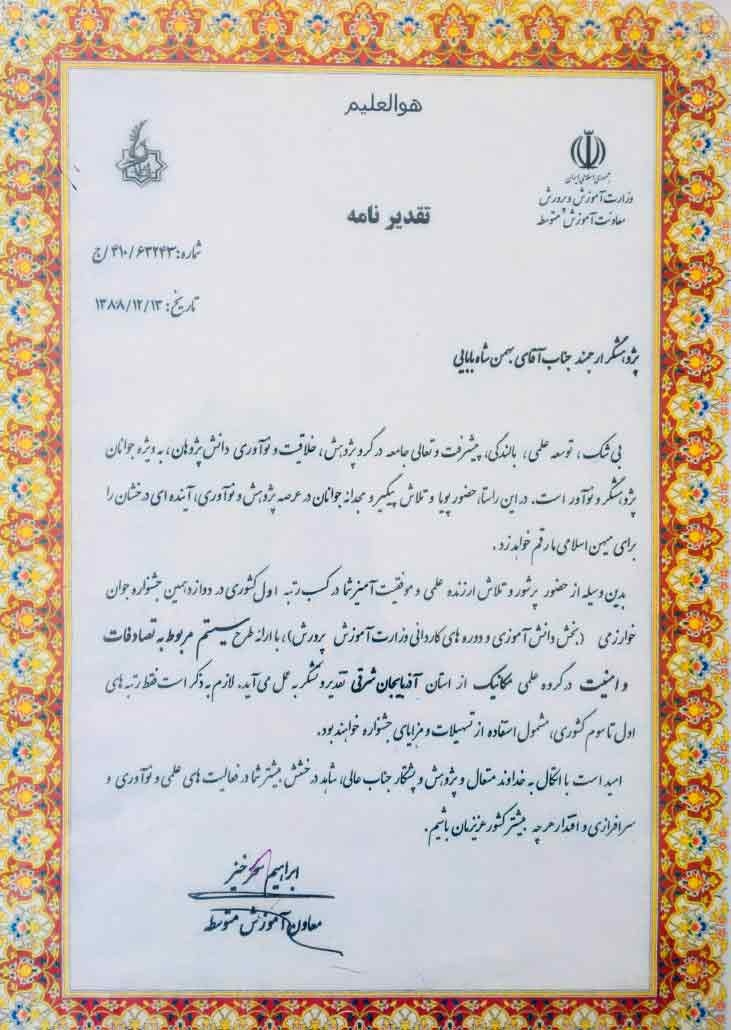 هوالعلیم
جمهوری اسلامی ایران
وزارت آموزش و پرورش
معاونت آموزش متوسطه
تقدیر نامه
شماره: ۴۱۰/۶۳۲۴۳/ج
تاریخ: ۱۳۸۸/۱۲/۱۳
پژوهشگر ارجمند جناب آقای بهمن شاه بابایی
بی شک، توسعه علمی، بالندگی، پیشرفت و تعالی جامعه در گرو پژوهش، خلاقیت و نوآوری دانش پژوهان، به ویژه جوانان
پژوهشگر و نوآور است. در این راستا، حضور پویا و تلاش پیگیر و مجدانه جوانان در عرصه پژوهش و نوآوری، آینده ای درخشان را
برای میهن اسلامی ما رقم خواهد زد.
بدین وسیله از حضور پرشور و تلاش ارزنده علمی و موفقیت آمیز شما در کسب رتبه اول کشوری در دوازدهمین جشنواره جوان
خوارزمی (بخش دانش آموزی و دوره های کاردانی وزارت آموزش پرورش)، با ارائه طرح سیستم مربوط به تصادفات
و امنیت در گروه علمی مکانیک از استان آذربایجان شرقی تقدیر و تشکر به عمل می آید. لازم به ذکر است فقط رتبه های
اول تا سوم کشوری، مشمول استفاده از تسهیلات و مزایای جشنواره خواهند بود.
امید است با اتکال به خداوند متعال و پژوهش و پشتکار جناب عالی، شاهد درخشش بیشتر شما در فعالیت های علمی و نوآوری و
سرافرازی و اقتدار هر چه بیشتر کشور عزیزمان باشیم.
ابراهیم سحرخیز
معاون آموزش متوسطه